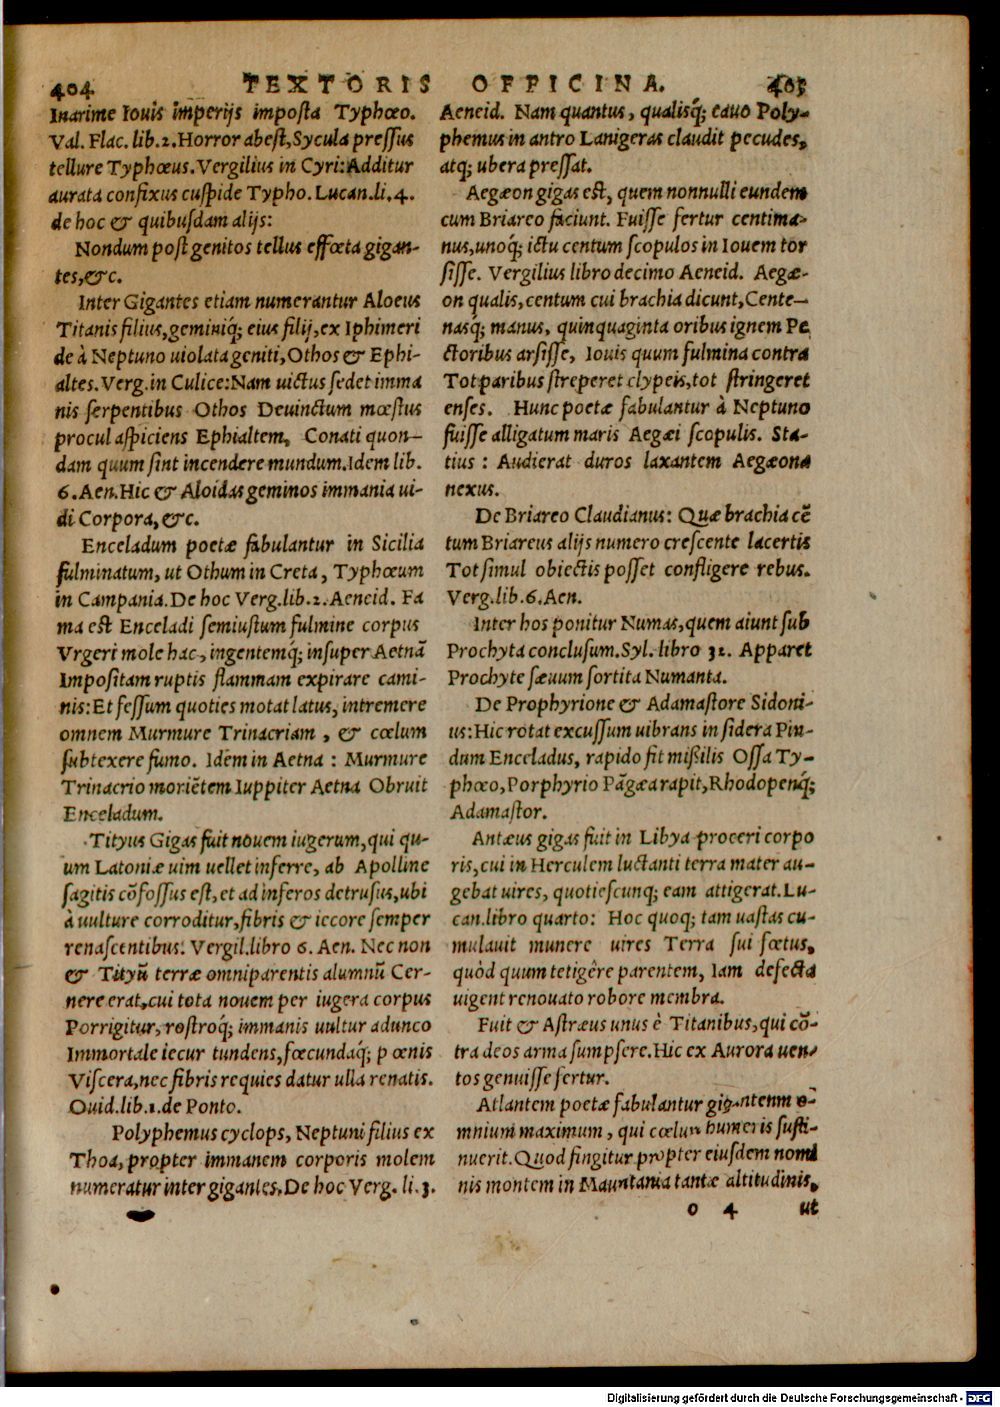 404 TEXTORIS OFFICINA. 405
Inarime Iouis imperijs imposta Typhœo.
Val. Flac. lib.2. Horror abest, Sycula pressus
tellure Typhœus. Vergilius in Cyri: Additur
aurata confixus cuspide Typho. Lucan. li. 4.
de hoc & quibusdam alijs:
Nondum post genitos tellus effœta gigan-
tes, &c.
Inter Gigantes etiam numerantur Aloeus
Titanis filius, geminiq́; eius filij, ex Iphimeri
de à Neptuno uiolata geniti, Othos & Ephi-
altes. Verg. in Culice: Nam uictus sedet imma
nis serpentibus Othos Deuinctum mœstus
procul aspiciens Ephialtem, Conati quon-
dam quum sint incendere mundum. Idem lib.
6. Aen. Hic & Aloidas geminos immania ui-
di Corpora, &c.
Enceladum poetæ fabulantur in Sicilia
fulminatum, ut Othum in Creta, Typhœum
in Campania. De hoc Verg. lib. 2. Aeneid. Fa
ma est Enceladi semiustum fulmine corpus
Vrgeri mole hac, ingentemq́; insuper Aetnã
Impositam ruptis flammam expirare cami-
nis: Et fessum quoties motat latus, intremere
omnem Murmure Trinacriam, & cœlum
subtexere fumo. Idem in Aetna: Murmure
Trinacrio moriẽtem Iuppiter Aetna Obruit
Enceladum.
Tityus Gigas fuit nouem iugerum, qui qu-
um Latoniæ uim uellet inferre, ab Apolline
sagitis cõfossus est, et ad inferos detrusus, ubi
à uulture corroditur, fibris & iecore semper
renascentibus. Vergil. libro 6. Aen. Nec non
& Tityũ terræ omniparentis alumnũ Cer-
nere erat, cui tota nouem per iugera corpus
Porrigitur, rostroq́; immanis uultur adunco
Immortale iecur tundens, fœcundaq́; pœnis
Viscera, nec fibris requies datur ulla renatis.
Ouid. lib. 1. de Ponto.
Polyphemus cyclops, Neptuni filius ex
Thoa, propter immanem corporis molem
numeratur inter gigantes. De hoc Verg. li. 3.
Aeneid. Nam quantus, qualisq́; cauo Poly-
phemus in antro Lanigeras claudit pecudes,
atq; ubera pressat.
Aegæon gigas est, quem nonnulli eundem
cum Briareo faciunt. Fuisse fertur centima-
nus, unoq́; ictu centum scopulos in Iouem tor
sisse. Vergilius libro decimo Aeneid. Aegæ-
on qualis, centum cui brachia dicunt, Cente-
nasq; manus, quinquaginta oribus ignem Pe
ctoribus arsisse, Iouis quum fulmina contra
Tot paribus streperet clypeis, tot stringeret
enses. Hunc poetæ fabulantur à Neptuno
fuisse alligatum maris Aegæi scopulis. Sta-
tius: Audierat duros laxantem Aegæona
nexus.
De Briareo Claudianus: Quæ brachia cẽ
tum Briareus alijs numero crescente lacertis
Tot simul obiectis posset confligere rebus.
Verg. lib. 6. Aen.
Inter hos ponitur Numas, quem aiunt sub
Prochyta conclusum. Syl. libro 32. Apparet
Prochyte sæuum sortita Numanta.
De Prophyrione & Adamastore Sidoni-
us: Hic rotat excussum uibrans in sidera Pin-
dum Enceladus, rapido fit missilis Ossa Ty-
phœo, Porphyrio Pãgæa rapit, Rhodopenq́;
Adamastor.
Antæus gigas fuit in Libya proceri corpo
ris, cui in Herculem luctanti terra mater au-
gebat uires, quotiescunq; eam attigerat. Lu-
can. libro quarto: Hoc quoq; tam uastas cu-
mulauit munere uires Terra sui fœtus,
quòd quum tetigêre parentem, Iam defecta
uigent renouato robore membra.
Fuit & Astræus unus è Titanibus, qui cõ-
tra deos arma sumpsere. Hic ex Aurora uen-
tos genuisse fertur.
Atlantem poetæ fabulantur gigantem o-
mnium maximum, qui cœlum humeris susti-
nuerit. Quod fingitur propter eiusdem nomi
nis montem in Mauritania tantæ altitudinis,
o 4 ut
Digitalisierung gefördert durch die Deutsche Forschungsgemeinschaft - DFG